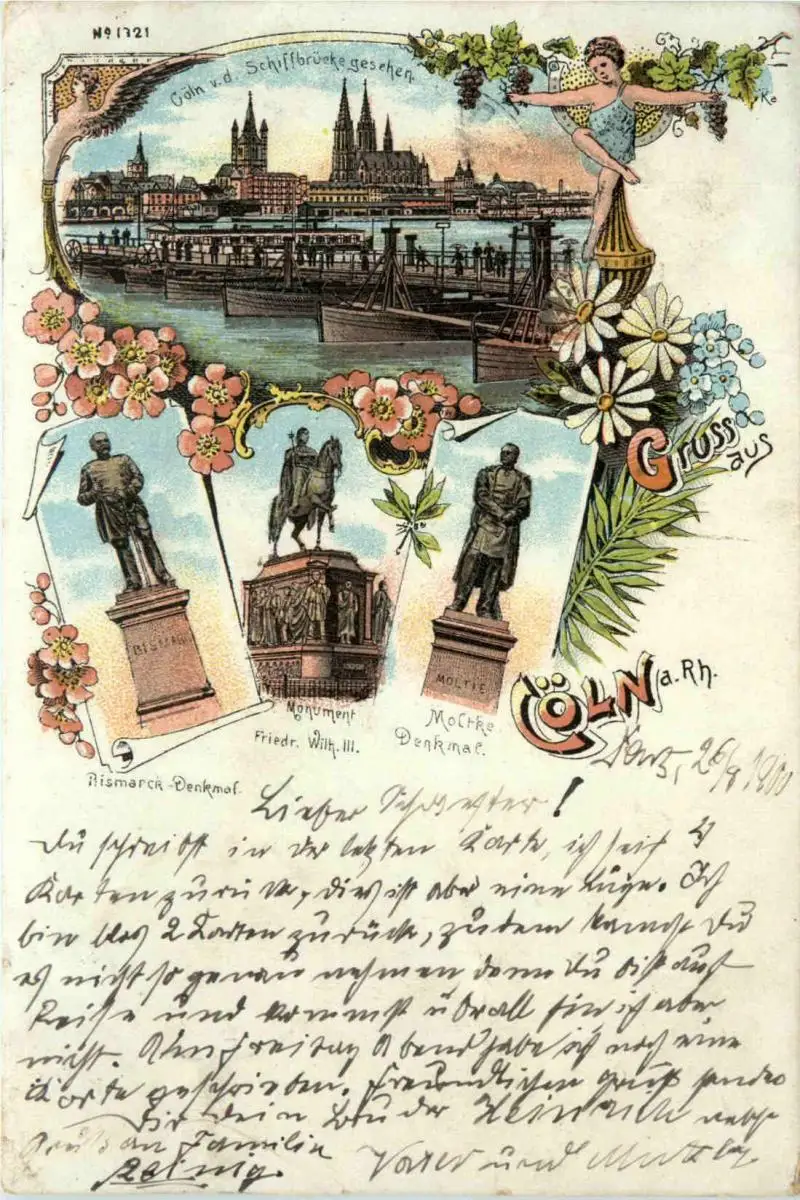 No 1321
Cöln v. d. Schiffbrücke gesehen.
Ke
Gruss
aus
CÖLN a. Rh.
BISMARK
MOLTKE
Monument
Friedr. Wilh. III.
Moltke
Denkmal.
Bismarck-Denkmal.
26/8 1900
Lieber Schwester!
Du schreibst in der letzten Karte, ich sei 4
Karten zurück, dies ist aber eine Lüge. Ich
bin blos 2 Karten zurück, zudem kannst Du
es nicht so genau nehmen denn Du bist auf
Reise und kommst überall hin ich aber
nicht. Am Freitag Abend habe ich noch eine
Karte geschrieben. Freundlichen Gruß sendet
Dir dein Bruder Heinrich nebst
Gruß an Familie
Vater und Mutter